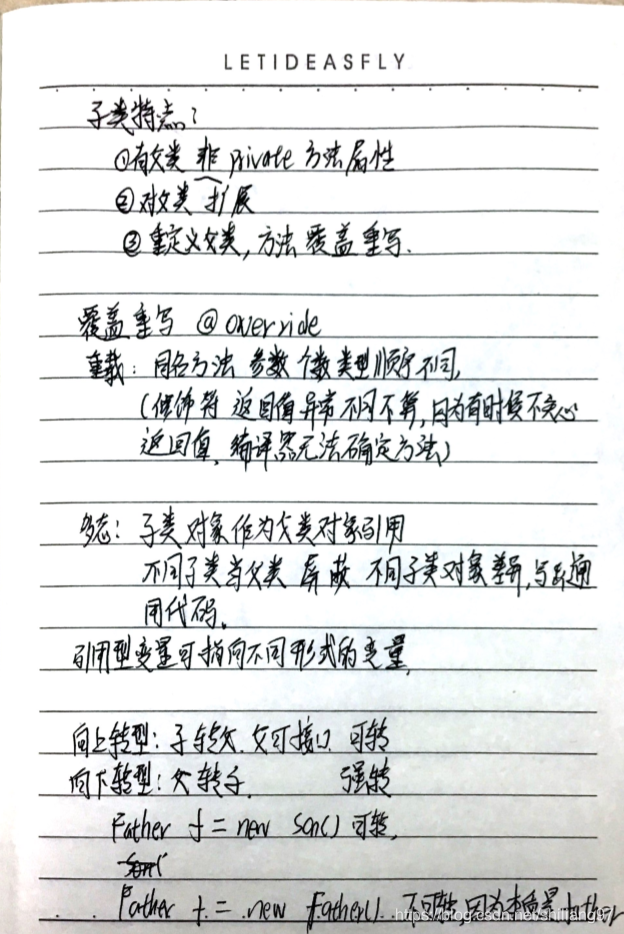 LETIDEASFLY
子类特点:
①有父类 非 private 方法属性
②对父类 扩展
③重定义父类,方法 覆盖重写.
覆盖重写 @override
重载: 同名方法 参数 个数类型顺序不同,
(修饰符 返回值异常不同不算,因为有时候不关心
返回值,编译器无法确定方法)
多态: 子类对象作为父类对象引用
不同子类当父类 屏蔽 不同子类对象差异,写出通
用代码。
引用型变量可指向不同形式的变量,
向上转型: 子转父. 父可接口 可转
向下转型: 父转子. 强转
Father f = new Son() 可转,
Father f = new Father(). 不可转,因为本质是father
https://blog.csdn.net/shiliang97